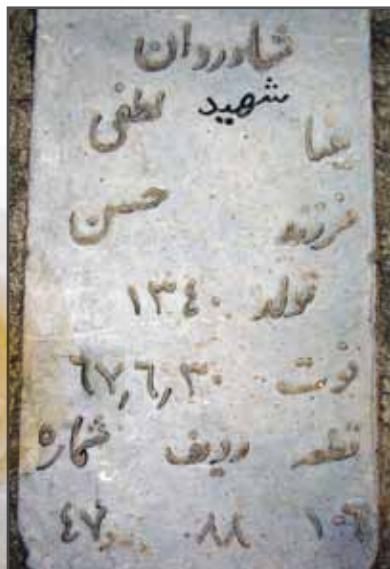 شادروان
شهید
رضا لطفی
فرزند حسن
تولد ۱۳٤۰
فوت ٦٧٫٦٫۳۰
قطعه ردیف شماره
۱۰٦ ۸۸ ٤٧